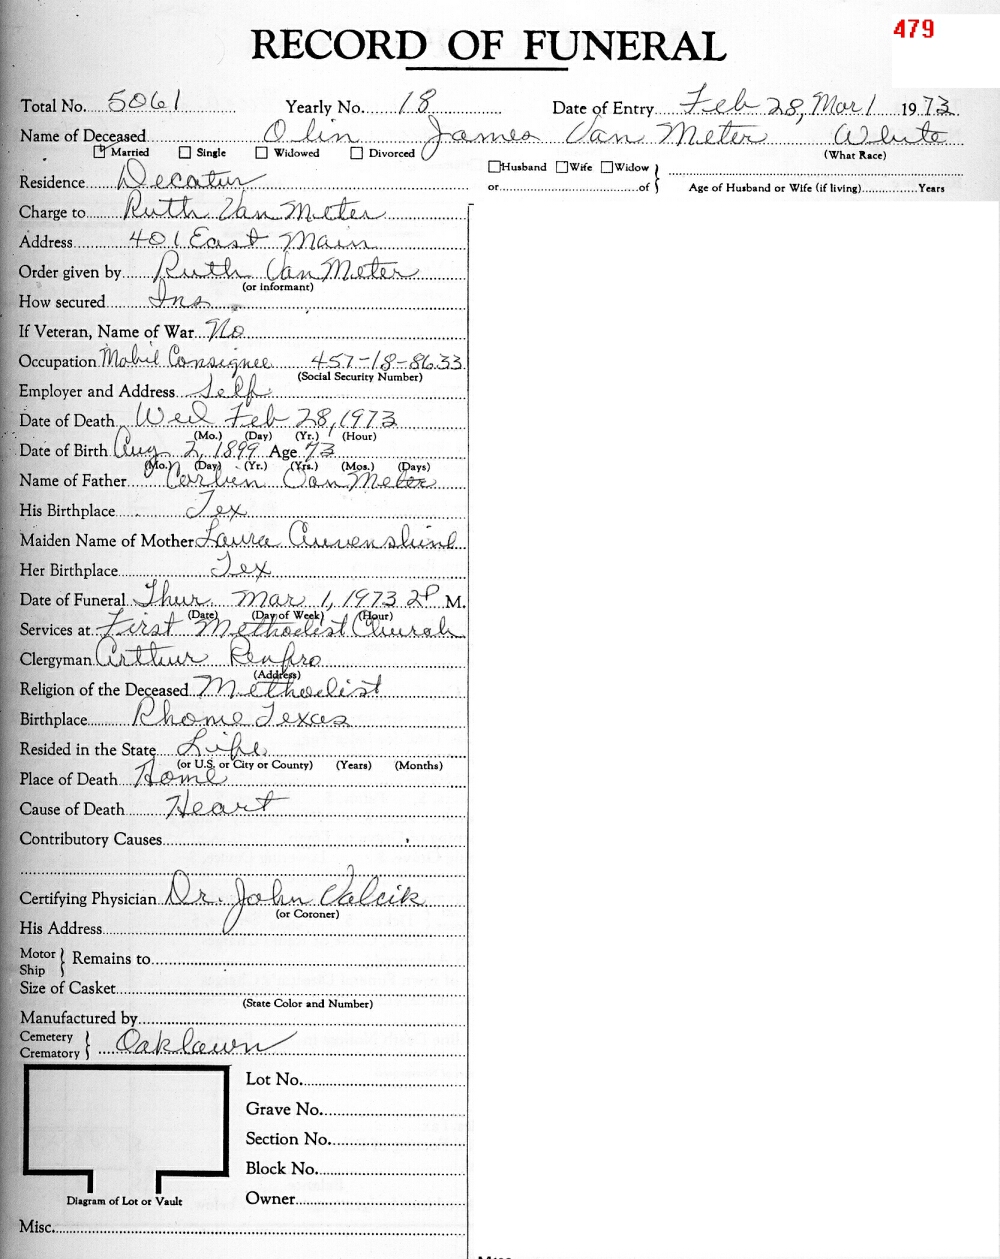 479
RECORD OF FUNERAL
Total No. 5061 Yearly No. 18 Date of Entry Feb 28, Mar 1 1973
Name of Deceased Olin James Van Meter White
☑ Married ☐ Single ☐ Widowed ☐ Divorced (What Race)
☐ Husband ☐ Wife ☐ Widow
Residence Decatur
or of Age of Husband or Wife (if living) Years
Charge to Ruth Van Meter
Address 401 East Main
Order given by Ruth Van Meter
(or informant)
How secured Ins
If Veteran, Name of War No
Occupation Mobil Consignee 457-18-8633
(Social Security Number)
Employer and Address Self
Date of Death Wed Feb 28, 1973
(Mo.) (Day) (Yr.) (Hour)
Date of Birth Aug 2, 1899 Age 73
(Mo.) (Day) (Yr.) (Yrs.) (Mos.) (Days)
Name of Father Van Meter
His Birthplace Tex
Maiden Name of Mother Laura
Her Birthplace Tex
Date of Funeral Thur Mar 1, 1973 2P M.
(Date) (Day of Week) (Hour)
Services at First Methodist Church
Clergyman Arthur Renfro
(Address)
Religion of the Deceased Methodist
Birthplace Rhome Texas
Resided in the State Life
(or U.S. or City or County) (Years) (Months)
Place of Death Home
Cause of Death Heart
Contributory Causes
Certifying Physician Dr. John Valcik
(or Coroner)
His Address
Motor
Ship Remains to
Size of Casket
(State Color and Number)
Manufactured by
Cemetery
Crematory Oaklawn
Lot No.
Grave No.
Section No.
Block No.
Diagram of Lot or Vault
Owner
Misc.